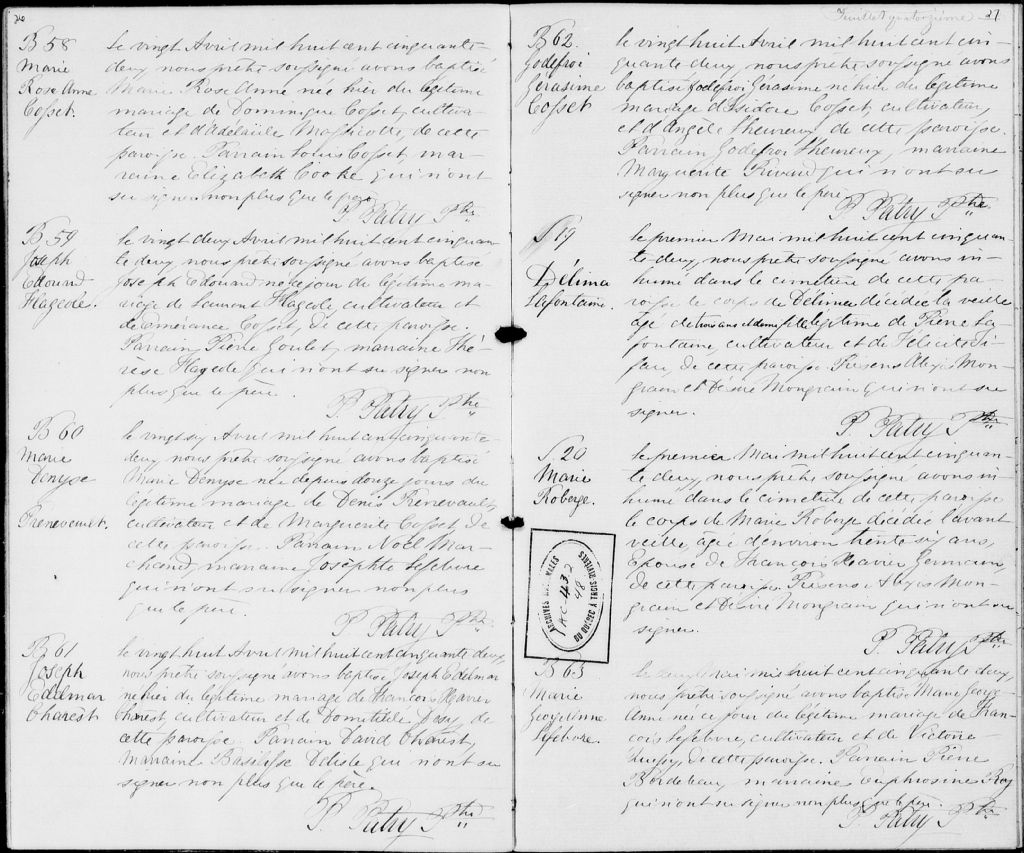 26
B 58
Marie
Rose Anne
Cosset.
Le vingt Avril mil huit cent cinquante-
deux nous prêtre soussigné avons baptisé
Marie Rose Anne née hier du légitime
mariage de Dominique Cosset, cultiva-
teur et d'Adelaïde Massicotte, de cette
paroisse. Parrain Louis Cosset, mar-
raine Elizabeth Cooke qui n'ont
su signer non plus que le père.
P. Patry Ptre
B 59
Joseph
Edouard
Flageole.
Le vingt deux Avril mil huit cent cinquan-
te deux, nous prêtre soussigné avons baptisé
Joseph Edouard né ce jour du légitime ma-
riage de Laurent Flageole cultivateur et
de Emérance Cosset, de cette paroisse.
Parrain Pierre Goulet, marraine Thé-
rèse Flageole qui n'ont su signer non
plus que le père.
P. Patry Ptre
B 60
Marie
Denyse
Preneveault.
Le vingt six Avril mil huit cent cinquante-
deux nous prêtre soussigné avons baptisé
Marie Denyse née depuis douze jours du
légitime mariage de Denis Preneveault,
cultivateur et de Marguerite Cosset de
cette paroisse. Parrain Noël Mar-
chand, marraine Josephte Lefebvre
qui n'ont su signer non plus
que le père.
P. Patry Ptre
B 61
Joseph
Edelmar
Charest
Le vingt huit Avril mil huit cent cinquante deux,
nous prêtre soussigné avons baptisé Joseph Edelmar
né hier du légitime mariage de François Xavier
Charest, cultivateur et de Domitilde Jessy, de
cette paroisse. Parrain David Charest,
marraine Basilisse Delisle qui n'ont su
signer non plus que le père.
P. Patry Ptre
Feuillet quatorzième 27
B 62.
Godefroi
Gérasime
Cosset
Le vingt huit Avril mil huit cent cin-
quante deux, nous prêtre soussigné avons
baptisé Godefroi Gérasime né hier du légitime
mariage d'Isidore Cosset, cultivateur,
et d'Angèle Lheureux, de cette paroisse.
Parrain Godefroi Lheureux, marraine
Marguerite Rivard qui n'ont su
signer non plus que le père.
P. Patry Ptre
S 19
Délima
Lafontaine.
Le premier Mai mil huit cent cinquan-
te deux, nous prêtre soussigné avons in-
humé dans le cimetière de cette pa-
roisse le corps de Délima décédée la veille
agé de trois ans et demi fille légitime de Pierre La-
fontaine, cultivateur et de Félicité
de cette paroisse. Présens Alexis Mon-
grain et Désiré Mongrain qui n'ont su
signer.
P. Patry Ptre
S. 20
Marie
Roberge.
Le premier Mai mil huit cent cinquan-
te deux, nous prêtre soussigné avons in-
humé dans le cimetière de cette paroisse
le corps de Marie Roberge décédée l'avant
veille, agée d'environ trente six ans,
Epouse de François Xavier Germain,
de cette paroisse. Présens Alexis Mon-
grain et Désiré Mongrain qui n'ont su
signer.
P. Patry Ptre
ARCHIVES NATIONALES
DU QUÉBEC À TROIS-RIVIÈRES
B 63
Marie
George Anne
Lefebvre.
Le deux Mai mil huit cent cinquante deux,
nous prêtre soussigné avons baptisé Marie George
Anne née ce jour du légitime mariage de Fran-
çois Lefebvre, cultivateur et de Victoire
de cette paroisse. Parrain Pierre
Bordeleau, marraine Euphrosine Roy
qui n'ont su signer non plus que le père.
P. Patry Ptre